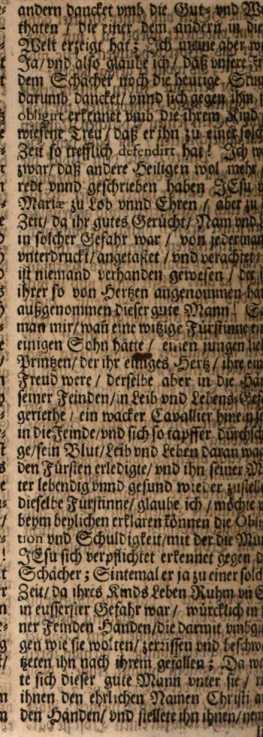 andern dancket vmb die Gut= vnd W
thaten / die einer dem andern in die
Welt erzeigt hat; Ich meine aber w
Ja / vnd also glaube ich / daß vnsere
dem Schächer noch die heutige Stun
darumb dancket / vnnd sich gegen ihm
obligirt erkennet vmb die ihrem Kind
wiesene Treu / daß er ihn zu einer solch
Zeit so trefflich defendirt hat! Ich w
zwar / daß andere Heiligen wol mehr
redt vnnd geschrieben haben JEsu v
Mariæ zu Lob vnnd Ehren / aber zu
Zeit / da ihr gutes Gerücht / Nam vnd
in solcher Gefahr war / von jederman
vnterdruckt / angetastet / vnd verachtet
ist niemand verhanden gewesen / der
ihrer so von Hertzen angenommen ha
außgenommen dieser gute Mann!
man mir / wañ eine witzige Fürstinne
einigen Sohn hätte / einen jungen lieb
Printzen / der ihr einiges Hertz / ihre ein
Freud were / derselbe aber in die Hän
seiner Feinden / in Leib vnd Lebens Gef
geriethe / ein wacker Cavallier
in die Feinde / vnd sich so tapffer durchsch
ge / sein Blut / Leib vnd Leben daran wag
den Fürsten erledigte / vnd ihn seiner M
ter lebendig vnnd gesund wieder zustelle
dieselbe Fürstinne / glaube ich / möchte
beym beylichen erklären können die Obli
tion vnd Schuldigkeit / mit der die Mu
JEsu sich verpflichtet erkennet gegen d
Schächer; Sintemal er ja zu einer solch
Zeit / da ihres Kinds Leben Ruhm vn E
in eusserster Gefahr war / würcklich in
ner Feinden Händen / die darmit vmbg
gen wie sie wolten / zerrissen vnd beschw
tzeten ihn nach ihrem gefallen; Da w
te sich dieser gute Mann vnter sie /
ihnen den ehrlichen Namen Christi a
den Händen / vnd stellete ihn ihnen /